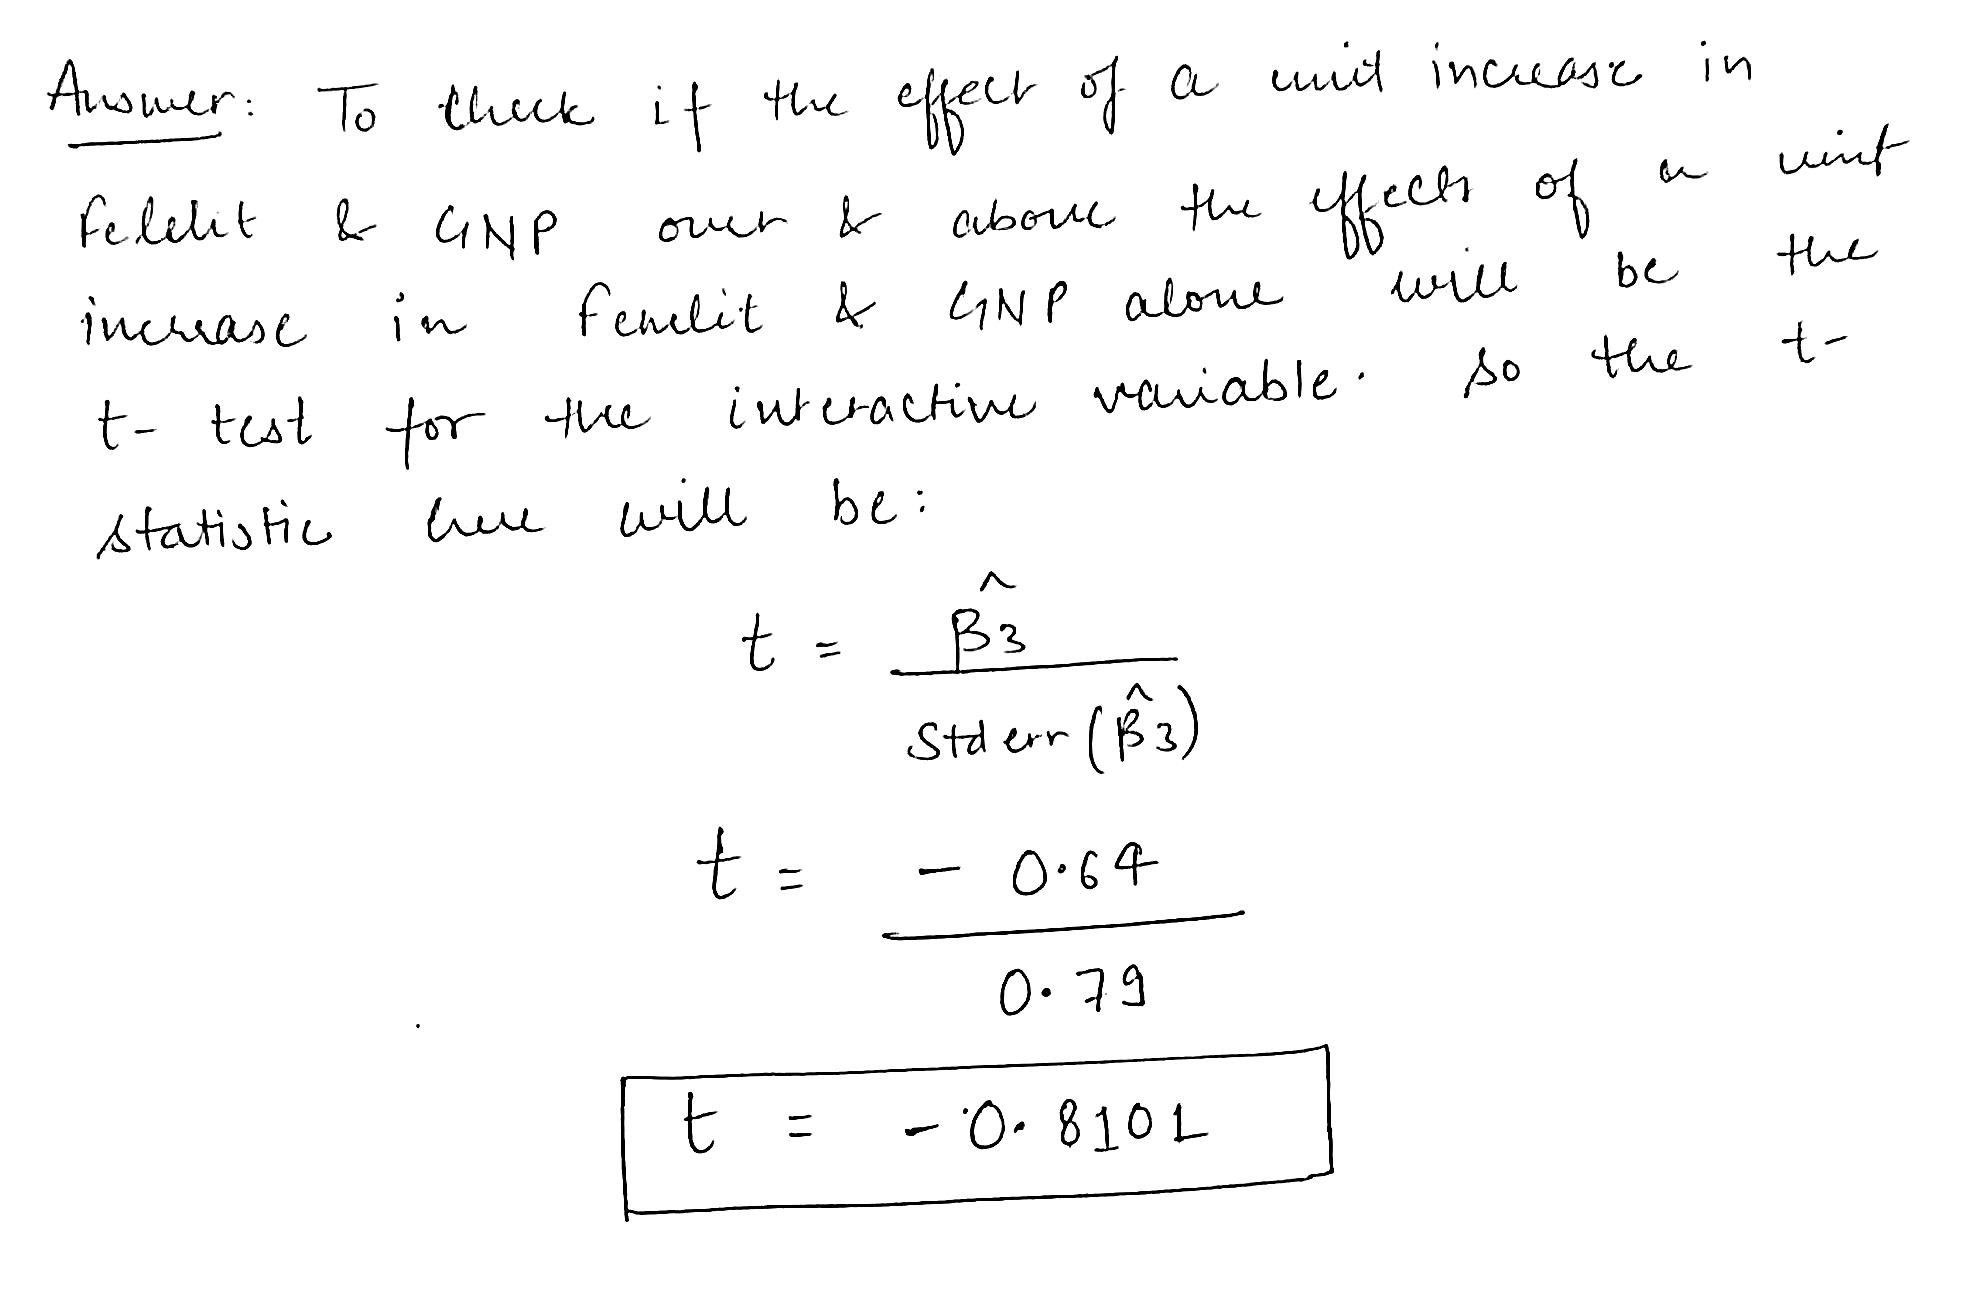 Answer: To check if the effect of a unit increase in
felelit & GNP over & above the effects of a unit
increase in femelit & GNP alone will be the
t- test for the interactive variable. So the t-
statistic here will be:
t = β̂3
Stderr (β̂3)
t = - 0.64
0.79
t = - 0.8101